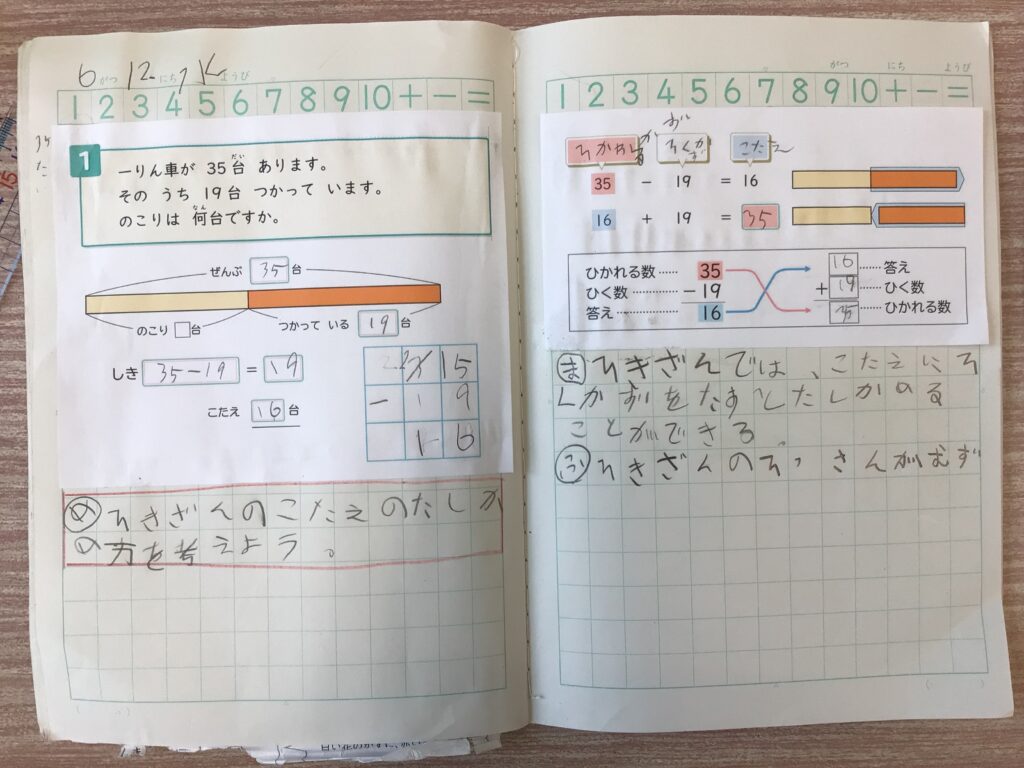 6 がつ 12 にち 水 ようび
1 2 3 4 5 6 7 8 9 10 + − =
1
一りん車が 35台 あります。
だい
その うち 19台 つかって います。
のこりは 何台ですか。
なん
ぜんぶ 35 台
のこり □台 つかって いる 19 台
しき 35−19 = 19
こたえ 16 台
15
− 1 9
1 6
め ひきざんのこたえのたしか
の方を考えよう。
がつ にち ようび
1 2 3 4 5 6 7 8 9 10 + − =
こたえ
35 − 19 = 16
16 + 19 = 35
ひかれる数…… 35
ひく数………… −19
答え………… 16
16 ……答え
+ 19 ……ひく数
35 ……ひかれる数
ま ひきざんでは、こたえにひ
くかずをたすとたしかめる
ことができる。
ふ ひきざんのひっさんがむず